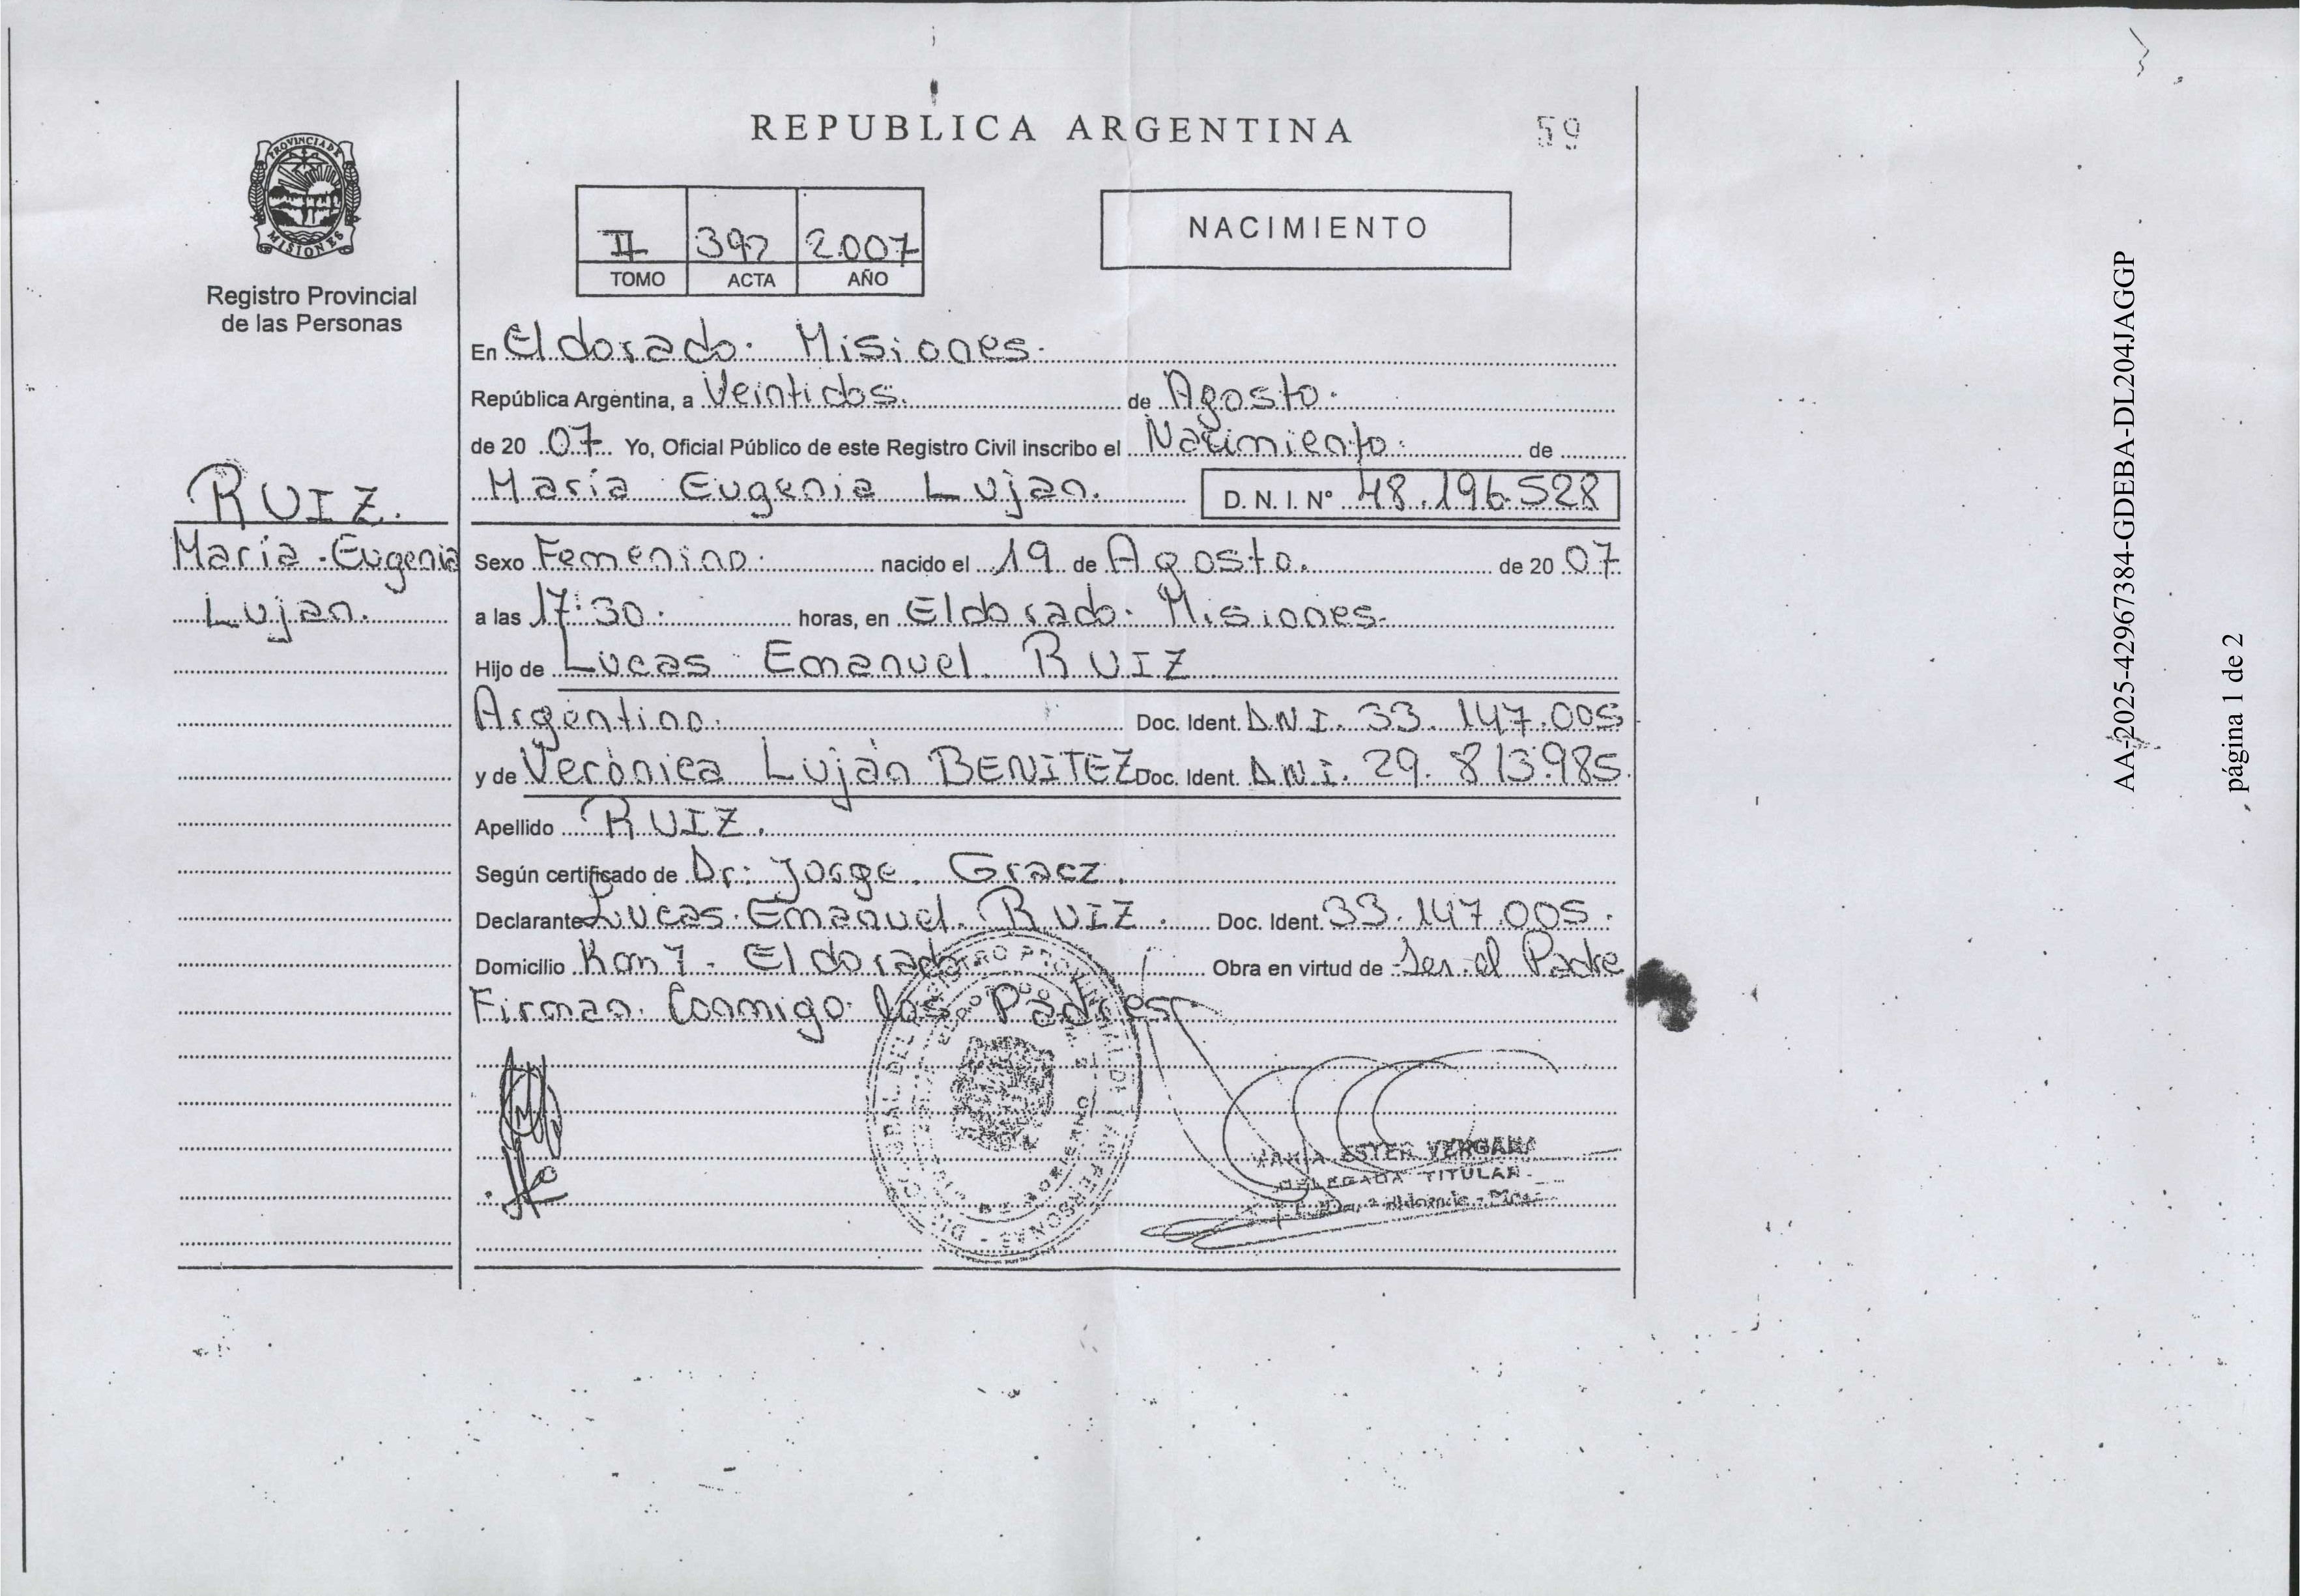 REPUBLICA ARGENTINA
59
PROVINCIA DE
MISIONES
Registro Provincial
de las Personas
II 392 2.007
TOMO ACTA AÑO
NACIMIENTO
En Eldorado. Misiones.
República Argentina, a Veintidos. de Agosto.
de 20 07 Yo, Oficial Público de este Registro Civil inscribo el Nacimiento. de
María Eugenia Lujan. D. N. I. Nº 48.196.528
RUIZ.
María Eugenia
Lujan.
Sexo Femenino. nacido el 19 de Agosto. de 20 07
a las 17:30. horas, en Eldorado. Misiones.
Hijo de Lucas Emanuel RUIZ
Argentino. Doc. Ident. D.N.I. 33.147.005
y de Verónica Luján BENITEZ Doc. Ident. D.N.I. 29.813.985.
Apellido RUIZ.
Según certificado de Dr: Jorge Gracz.
Declarante Lucas Emanuel RUIZ. Doc. Ident. 33.147.005.
Domicilio Km 7 - Eldorado Obra en virtud de Ser el Padre
Firman Conmigo los Padres
ESTER VERGARA
DELEGADA TITULAR
AA-2025-42967384-GDEBA-DL204JAGGP
página 1 de 2